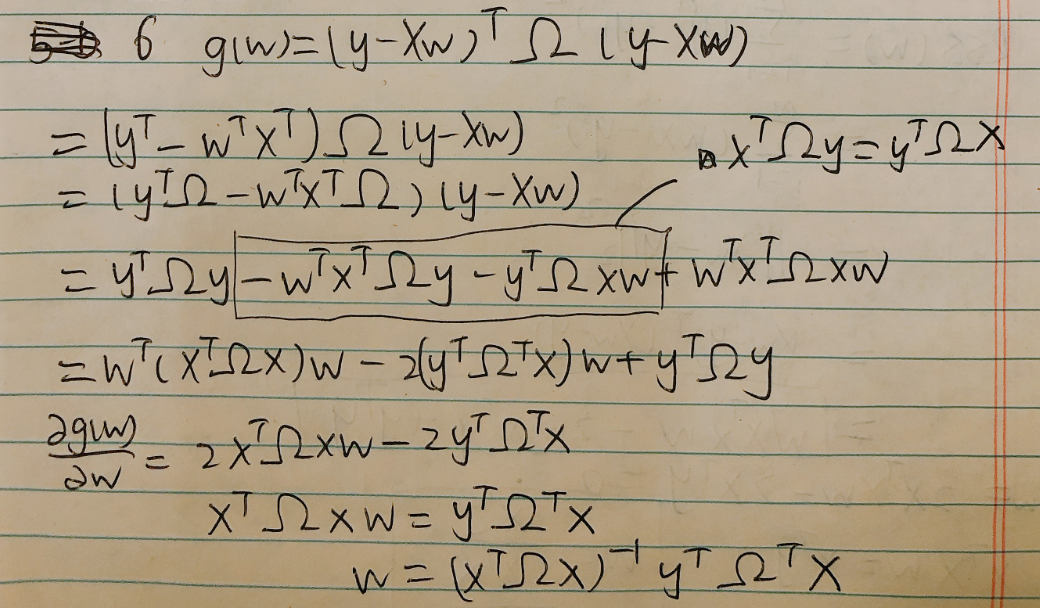 6 g(w)=(y-Xw)ᵀ Ω (y-Xw)
=(yᵀ-wᵀXᵀ)Ω(y-Xw)
xᵀΩy=yᵀΩX
=(yᵀΩ-wᵀXᵀΩ)(y-Xw)
=yᵀΩy-wᵀxᵀΩy-yᵀΩxw+wᵀxᵀΩxw
=wᵀ(xᵀΩx)w-2(yᵀΩᵀx)w+yᵀΩy
∂g(w)/∂w = 2xᵀΩxw-2yᵀΩᵀx
xᵀΩxw=yᵀΩᵀx
w=(xᵀΩx)⁻¹yᵀΩᵀx